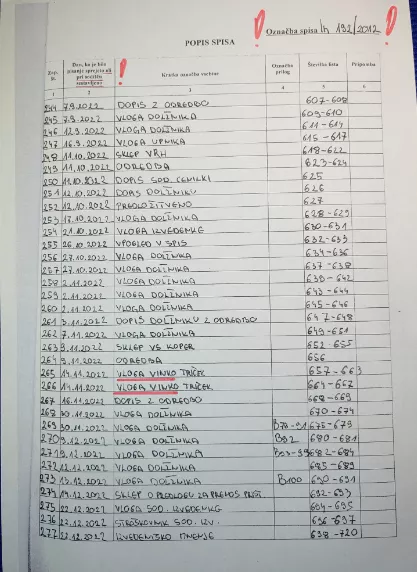 Označba spisa In 192/2012
POPIS SPISA
Zap. št. Dan, ko je bilo pisanje sprejeto ali pri sodišču sestavljeno Kratka označba vsebine Označba prilog Številka lista Pripomba
1 2 3 4 5 6
244 7.9.2022 DOPIS Z ODREDBO 607-608
245 7.9.2022 VLOGA DOLŽNIKA 609-610
246 12.9.2022 VLOGA DOLŽNIKA 611-614
247 16.9.2022 VLOGA UPNIKA 615-617
248 11.10.2022 SKLEP VRH 618-622
249 11.10.2022 ODREDBA 623-624
250 11.10.2022 DOPIS SOD. CENILKI 625
251 12.10.2022 DOPIS DOLŽNIKU 626
252 12.10.2022 PREDLOŽITVENO 627
253 17.10.2022 VLOGA DOLŽNIKA 628-629
254 21.10.2022 VLOGA IZVEDENKE 630-631
255 26.10.2022 VPOGLED V SPIS 632-633
256 27.10.2022 VLOGA DOLŽNIKA 634-636
257 27.10.2022 VLOGA DOLŽNIKA 637-638
258 2.11.2022 VLOGA DOLŽNIKA 639-642
259 2.11.2022 VLOGA DOLŽNIKA 643-644
260 2.11.2022 VLOGA DOLŽNIKA 645-646
261 3.11.2022 DOPIS DOLŽNIKU Z ODREDBO 647-648
262 7.11.2022 VLOGA DOLŽNIKA 649-651
263 9.11.2022 SKLEP VS KOPER 652-655
264 9.11.2022 ODREDBA 656
265 14.11.2022 VLOGA VINKO TRČEK 657-663
266 14.11.2022 VLOGA VINKO TRČEK 664-667
267 16.11.2022 DOPIS Z ODREDBO 668-669
268 30.11.2022 VLOGA DOLŽNIKA 670-674
269 30.11.2022 VLOGA DOLŽNIKA B78-91 675-679
270 9.12.2022 VLOGA DOLŽNIKA B92 680-681
271 9.12.2022 VLOGA DOLŽNIKA B93-99 682-684
272 12.12.2022 VLOGA DOLŽNIKA 685-689
273 13.12.2022 VLOGA DOLŽNIKA B100 690-691
274 19.12.2022 SKLEP O PREDLOGU ZA PRENOS PRIST. 692-693
275 22.12.2022 VLOGA SOD. IZVEDENKE 694-695
276 22.12.2022 STROŠKOVNIK SOD. IZV. 696-697
277 22.12.2022 IZVEDENIŠKO MNENJE 698-720